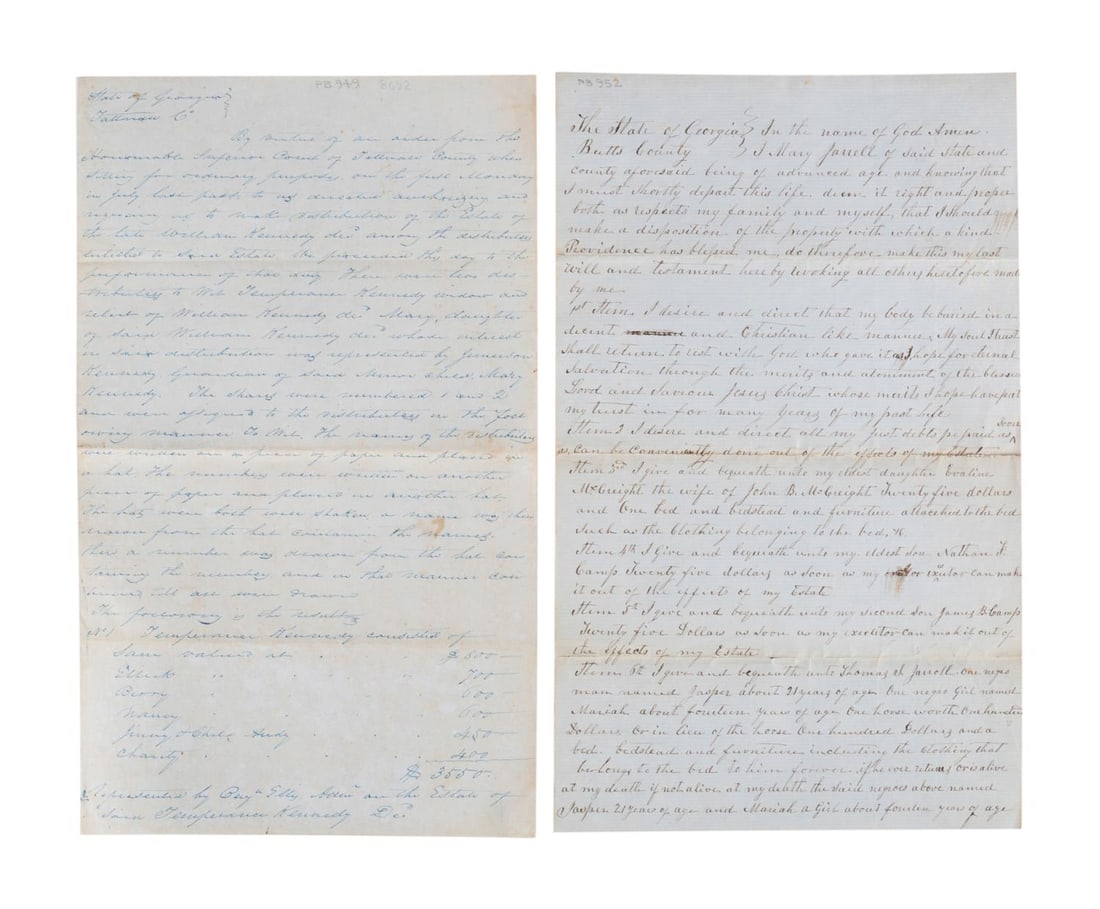 PB 949 8692
State of Georgia
Tattnall Co
By virtue of an order from the
Honourable Inferior Court of Tattnall County when
Sitting for ordinary purposes, on the first Monday
in July last past, to us directed authorizing and
requiring us to make distribution of the Estate of
the late William Kennedy decd among the distributees
entitled to Said Estate We proceeded this day to the
performance of that duty There were two dis-
tributees to Wit Temperance Kennedy widow and
relict of William Kennedy decd Mary, daughter
of said William Kennedy decd whose interest
in said distribution was represented by Jimerson
Kennedy Guardian of Said Minor child, Mary
Kennedy. The Shares were numbered 1 and 2
and were assigned to the distributees in the foll
owing manner To Wit, The names of the distributees
were written on a piece of paper and placed in
a hat The numbers were written on another
piece of paper and placed in another hat,
The hats were both well shaken, a name was then
drawn from the hat containing the names.
then a number was drawn from the hat con
taining the numbers and in that manner con
tinued till all were drawn
The following is the result
No 1 Temperance Kennedy consisted of
Sam valued at $ 800
700
Berry 600
Nancy 600
Jinny & Child Andy 450
Charity 400
$ 3550.
Represented by Benj Admr on the Estate of
Said Temperance Kennedy Decd
PB 952
The State of Georgia } In the name of God Amen.
Butts County } I Mary Jarrell of said State and
county aforesaid being of advanced age and knowing that
I must Shortly depart this life. deem it right and proper
both as respects my family and myself, that I should
make a disposition of the property with which a kind
Providence has blessed me, do therefore make this my last
Will and testament hereby revoking all others heretofore made
by me
1st Item. I desire and direct that my body be buried in a
decent and Christian like manner, My Soul I trust
Shall return to rest with God who gave it as I hope for eternal
Salvation through the merits and atonement of the blessed
Lord and Saviour Jesus Christ whose merits I hope have put
my trust in for many Years of my past life
Item 2 I desire and direct all my just debts be paid as soon
as can be conveniently done out of the effects of my Estate
Item 3rd I give and bequeath unto my eldest daughter Evaline
McCreight the wife of John B. McCreight Twenty five dollars
and One bed and bedstead and furniture attached to the bed
Such as the Clothing belonging to the bed, &c.
Item 4th I Give and bequeath unto my eldest Son Nathan F.
Camp Twenty five dollars as soon as my executor can make
it out of the effects of my Estate
Item 5th I give and bequeath unto my second Son James B. Camp
Twenty five Dollars as soon as my executor can make it out of
the effects of my Estate
Item 6th I give and bequeath unto Thomas J. Jarrell One negro
man named Jasper about 21 years of age One negro Girl named
Mariah about fourteen years of age One horse worth One hundred
Dollars. Or in lieu of the horse One hundred Dollars and a
bed. bedstead and furniture including the clothing that
belongs to the bed to him forever. if he ever returns or is alive
at my death if not alive at my death the Said negroes above named
Jasper 21 years of age and Mariah a Girl about fourteen years of age